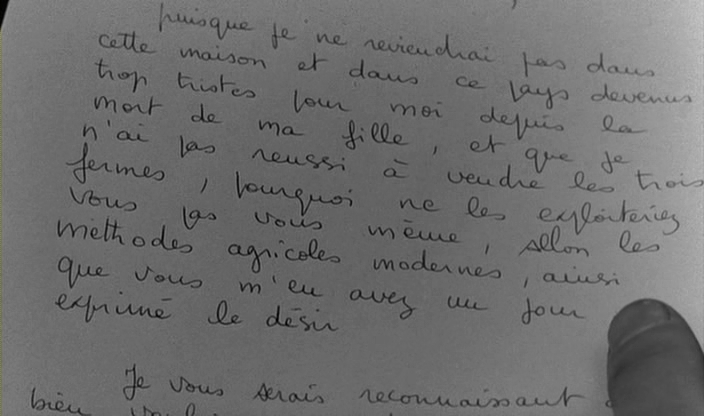 puisque je ne reviendrai pas dans
cette maison et dans ce pays devenus
trop tristes pour moi depuis la
mort de ma fille, et que je
n'ai pas reussi à vendre les trois
fermes, pourquoi ne les exploiteriez
vous pas vous même, sellon les
méthodes agricoles modernes, ainsi
que vous m'en avez un jour
exprimé le désir
Je vous serais reconnaissant
bien